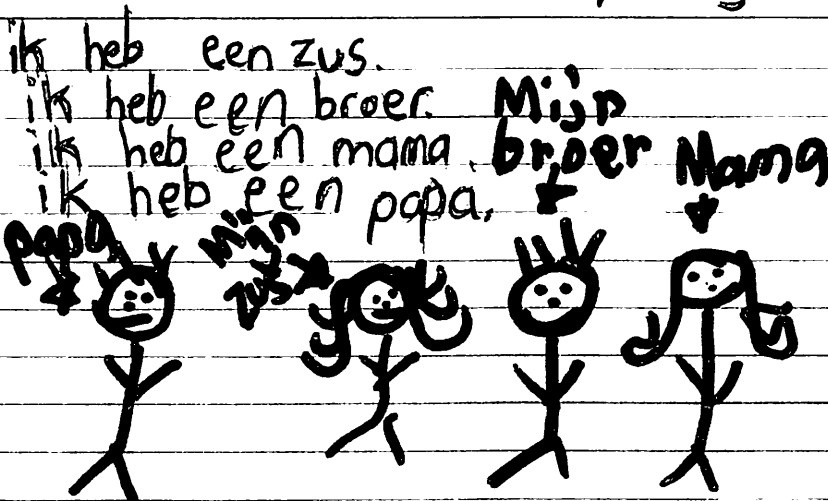 ik heb een zus.
ik heb een broer.
ik heb een mama.
ik heb een papa.
Mijn
broer
Mama
papa
Mijn
zus